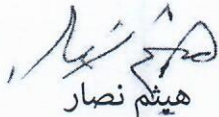 هيثم نصار